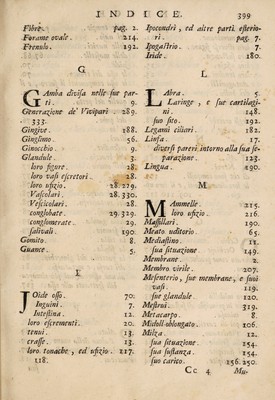 INDICE. 399
Fibre. pag. 2.
Forame ovale. 214.
Frenulo. 192.
G
GAmba divisa nelle sue par-
ti. 9.
Generazione de' Vivipari 289.
333.
Gingive. 188.
Ginglimo. 56.
Ginocchio. 9.
Glandule. 3.
loro figure. 28.
loro vasi escretori. 28.
loro ufizio. 28.229.
Vascolari. 28.330.
Vescicolari. 28.
conglobate. 29.329.
conglomerate. 29.
salivali. 190.
Gomito. 8.
Guance. 5.
I
JOide osso. 70.
Inguini. 7.
Intestina. 12.
loro escrementi. 20.
tenui. 13.
crasse. 13.
loro tonache, ed ufizio. 117.
118.
Ipocondri, ed altre parti esterio-
ri. pag. 7.
Ipogastrio. 7.
Iride. 180.
L
LAbra. 5.
Laringe, e sue cartilagi-
ni. 148.
suo sito. 192.
Legami ciliari. 182.
Linfa. 17.
diversi pareri intorno alla sua se-
parazione. 123.
Lingua. 190.
M
MAmmelle. 215.
loro ufizio. 216.
Massillari. 190.
Meato uditorio. 65.
Mediastino. 11.
sua situazione. 149.
Membrane. 2.
Membro virile. 207.
Mesenterio, sue membrane, e suoi
vasi. 119.
sue glandule. 120.
Mestrui. 319.
Metacarpo. 8.
Midoll-oblongato. 106.
Milza. 12.
sua situazione. 154.
sua sustanza. 154.
suo carico. 156.250.
Cc 4 Mu-